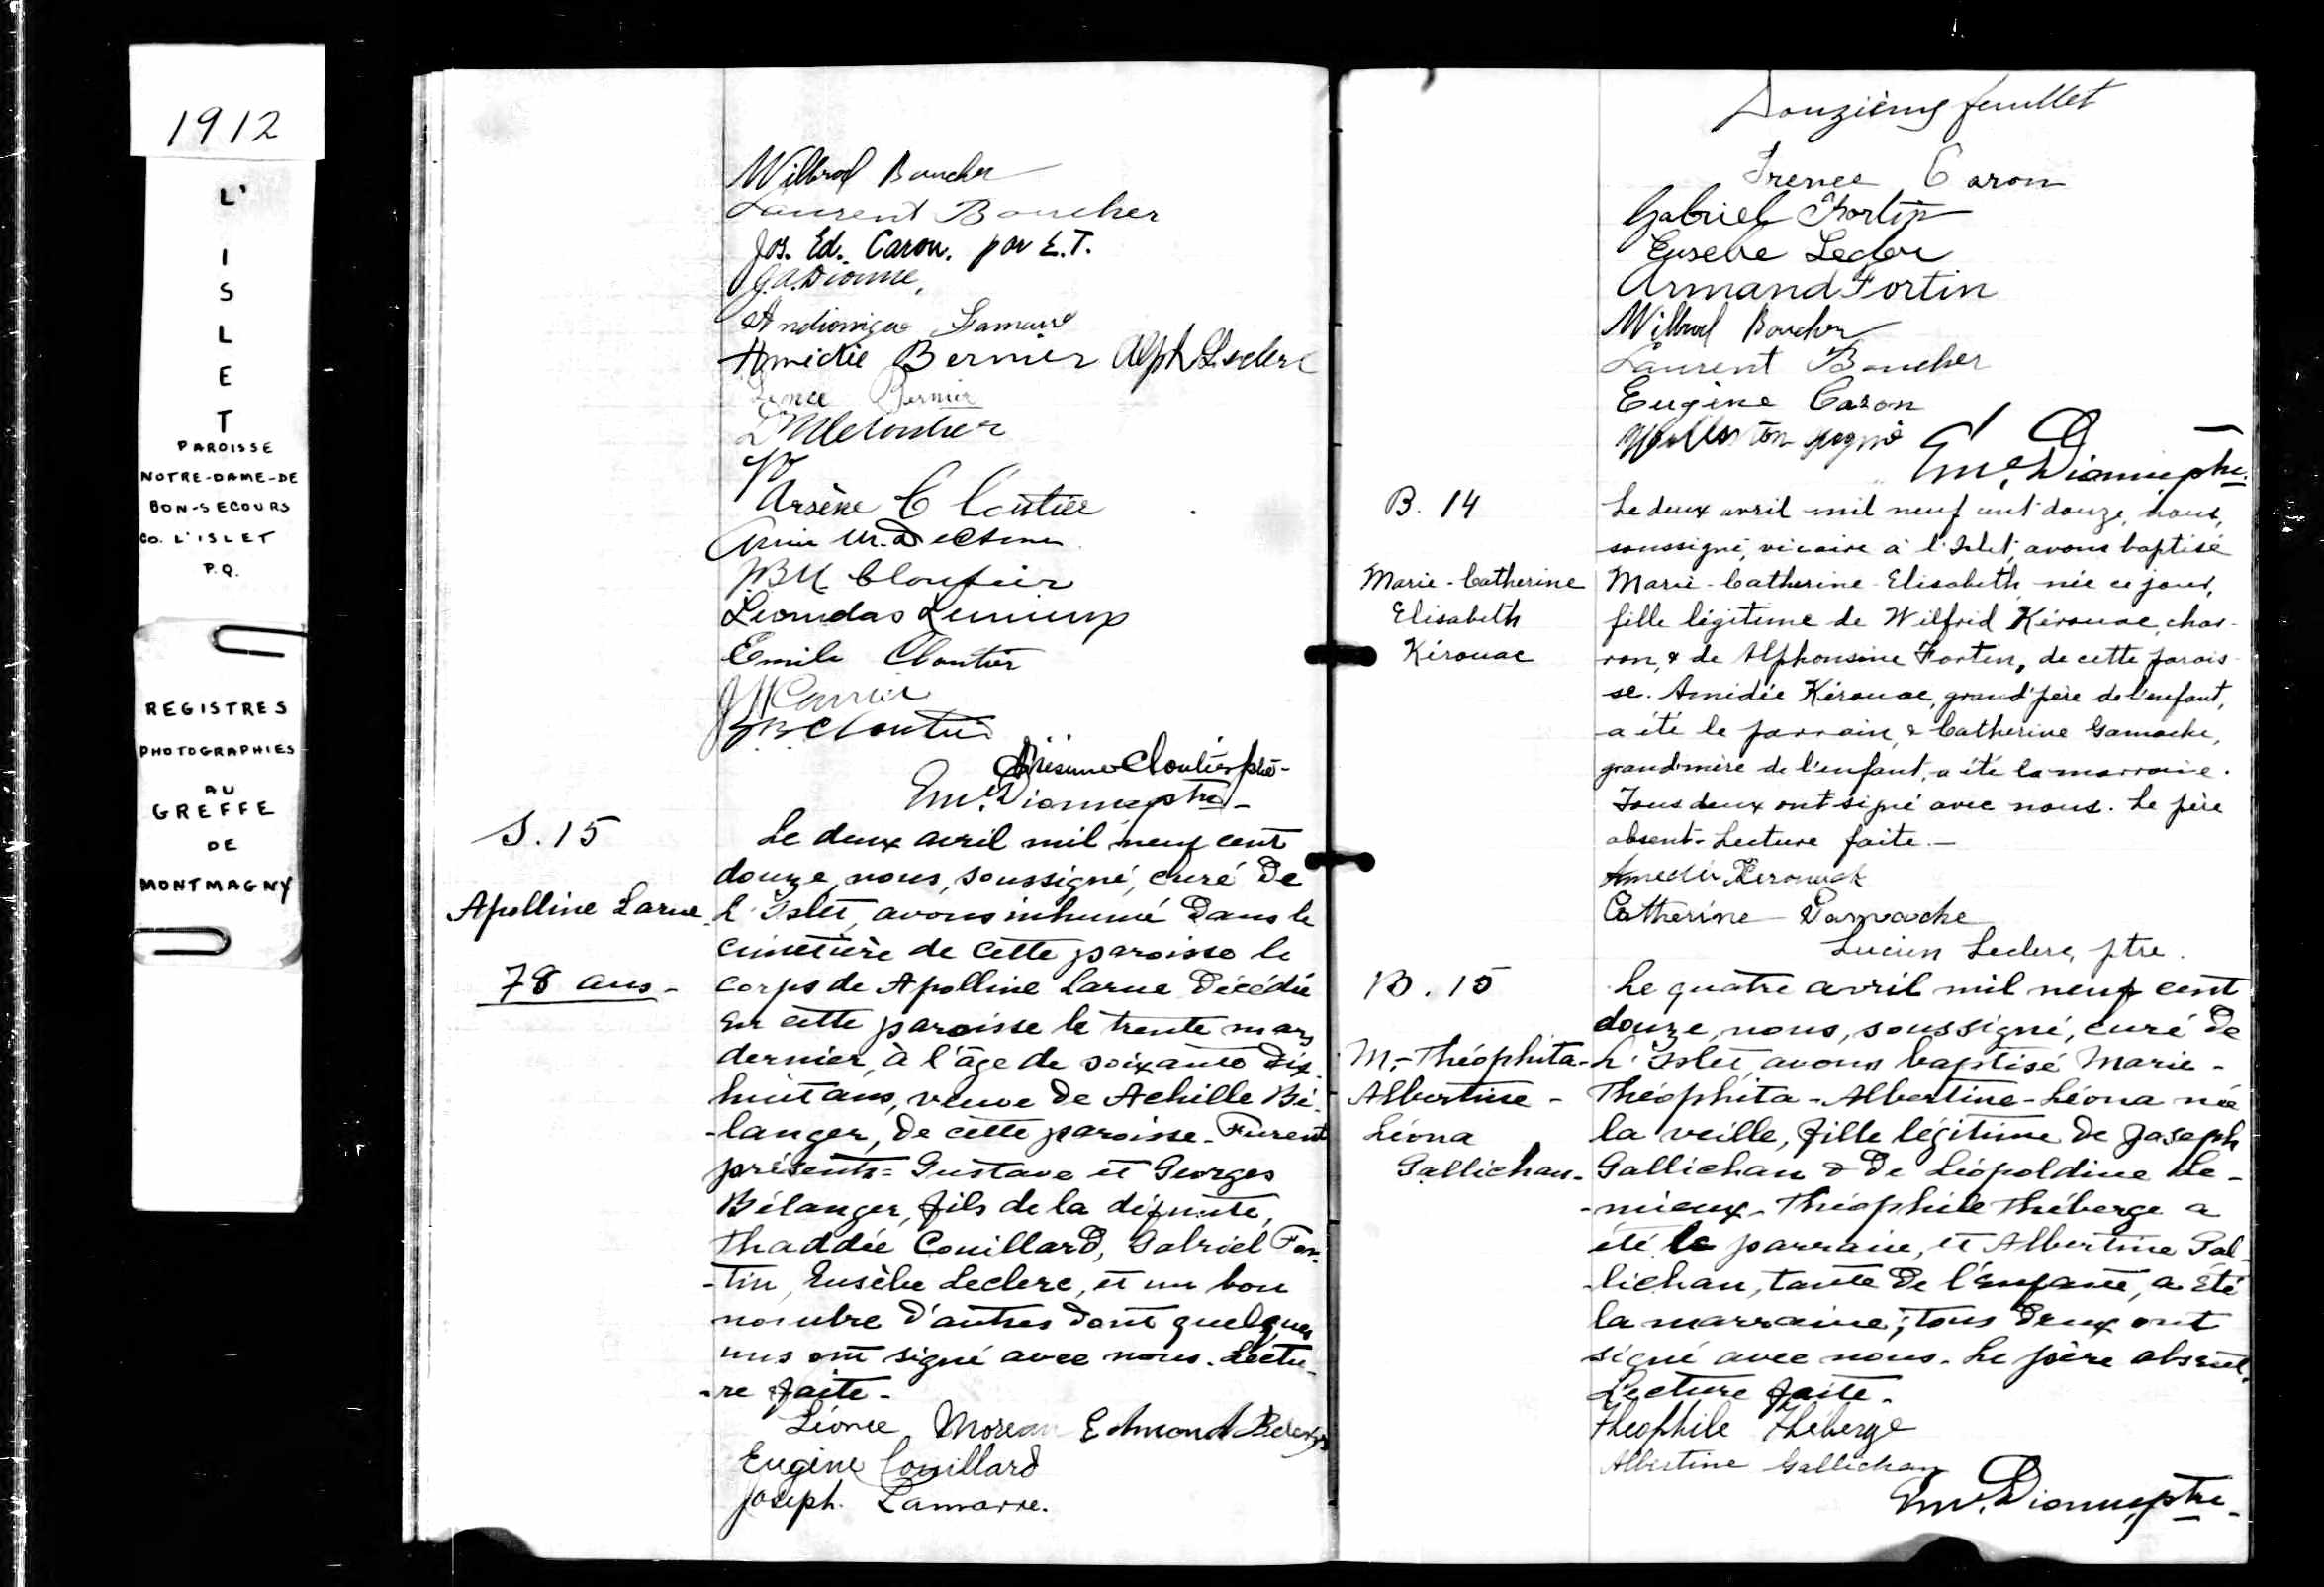 1912
L'
I
S
L
E
T
PAROISSE
NOTRE-DAME-DE
BON-SECOURS
CO. L'ISLET
P.Q.
REGISTRES
PHOTOGRAPHIES
AU
GREFFE
DE
MONTMAGNY
Wilbrod Boucher
Laurent Boucher
Jos. Ed. Caron. par E.T.
J.A. Dionne,
Amédée Bernier Alph Leclerc
Bernier
Arsène Cloutier
J.B.M. Cloutier
Léonidas Lemieux
Emile Cloutier
J.B. Cloutier
Cloutier ptre-
Em. Dionne, ptre-
S. 15
Apolline Larue
78 ans-
Le deux avril mil neuf cent
douze, nous, soussigné, curé de
L'Islet, avons inhumé dans le
cimetière de cette paroisse le
corps de Apolline Larue décédée
en cette paroisse le trente mars
dernier, à l'âge de soixante dix-
huit ans, veuve de Achille Bé-
-langer, de cette paroisse. Furent
présents= Gustave et Georges
Bélanger, fils de la défunte,
Thaddée Couillard, Gabriel For-
-tin, Eusèbe Leclerc, et un bon
nombre d'autres dont quelques
uns ont signé avec nous. Lectu-
-re faite-
Léonce Moreau Edmond Belanger
Eugène Couillard
Joseph. Lamarre.
Douzième feuillet
Irenee Caron
Gabriel Fortin
Eusebe Lecler
Armand Fortin
Wilbrod Boucher
Laurent Boucher
Eugène Caron
Em. Dionne ptre.
B. 14
Marie-Catherine
Elisabeth
Kérouac
Le deux avril mil neuf cent douze, nous,
soussigné, vicaire à l'Islet, avons baptisé
Marie-Catherine-Elisabeth, née ce jour,
fille légitime de Wilfrid Kérouac, char-
ron, & de Alphonsine Fortin, de cette parois-
se. Amédée Kérouac, grand'père de l'enfant,
a été le parrain, & Catherine Gamache,
grand'mère de l'enfant, a été la marraine.
Tous deux ont signé avec nous. Le père
absent. Lecture faite.-
Amedée Kerouack
Catherine Gamache
Lucien Leclerc, ptre.
B. 15
M.-Théophita-
Albertine-
Léona
Gallichan-
Le quatre avril mil neuf cent
douze, nous, soussigné, curé de
L'Islet, avons baptisé Marie-
Théophita-Albertine-Léona née
la veille, fille légitime de Joseph
Gallichan & de Léopoldine Le-
-mieux. Théophile Théberge a
été le parrain, et Albertine Gal-
-lichan, tante de l'enfant, a été
la marraine; tous deux ont
signé avec nous. Le père absent.
Lecture faite.
Theophile Theberge
Albertine Gallichan
Em. Dionne, ptre-